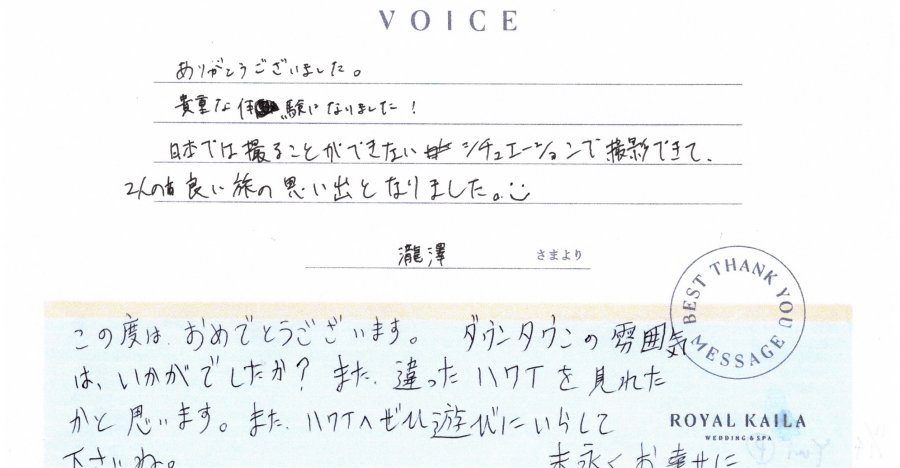 VOICE
ありがとうございました。
貴重な体験になりました!
日本では撮ることができないシチュエーションで撮影できて、
2人の良い旅の思い出となりました。
瀧澤 さまより
BEST THANK YOU MESSAGE
この度は、おめでとうございます。 ダウンタウンの雰囲気
は、いかがでしたか? また、違ったハワイを見れた
かと思います。また、ハワイへぜひ遊びにいらして
ROYAL KAILA
WEDDING & SPA
下さいね。 末永くお幸せに